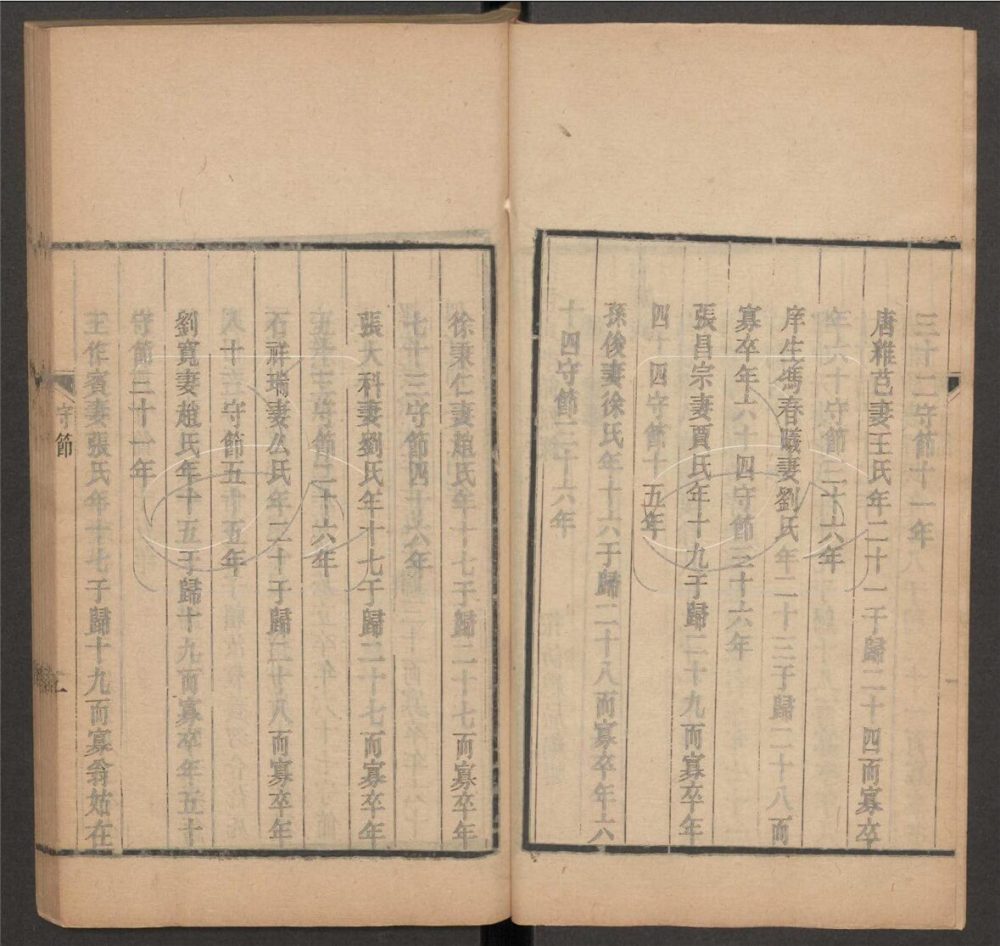 三十二守節十一年
唐雜芑妻王氏年二十一于歸二十四而寡卒
年六十守節三十六年
庠生馮春曦妻劉氏年二十三于歸二十八而
寡卒年六十四守節三十六年
張昌宗妻賈氏年十九于歸二十九而寡卒年
四十四守節十五年
孫俊妻徐氏年十六于歸二十八而寡卒年六
十四守節三十六年
徐秉仁妻趙氏年十七于歸二十七而寡卒年
七十三守節四十六年
張大科妻劉氏年十七于歸二十七而寡卒年
五十三守節二十六年
石祥瑞妻公氏年二十于歸二十八而寡卒年
八十三守節五十五年
劉寬妻趙氏年十五于歸十九而寡卒年五十
守節三十一年
王作賓妻張氏年十七于歸十九而寡翁姑在
守節